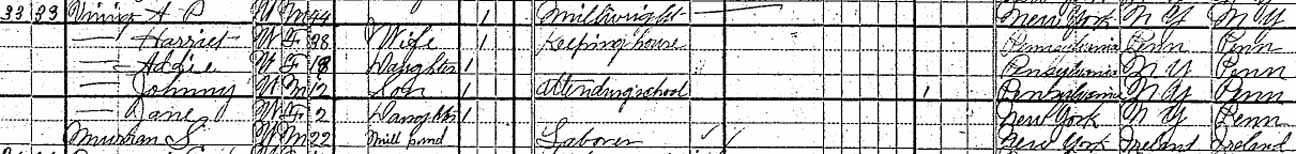 33 33 Vining A P W M 44 1 Millwright New York N Y N Y
— Harriet W F 38 Wife 1 Keeping house Pennsylvania Penn Penn
— Addie W F 18 Daughter 1 Pensylvania N Y Penn
— Johnny W M 12 Son 1 Attending school 1 Pensylvania N Y Penn
— Jane W F 2 Daughter 1 New York N Y Penn
S. W M 22 Mill hand Laborer New York Ireland Ireland